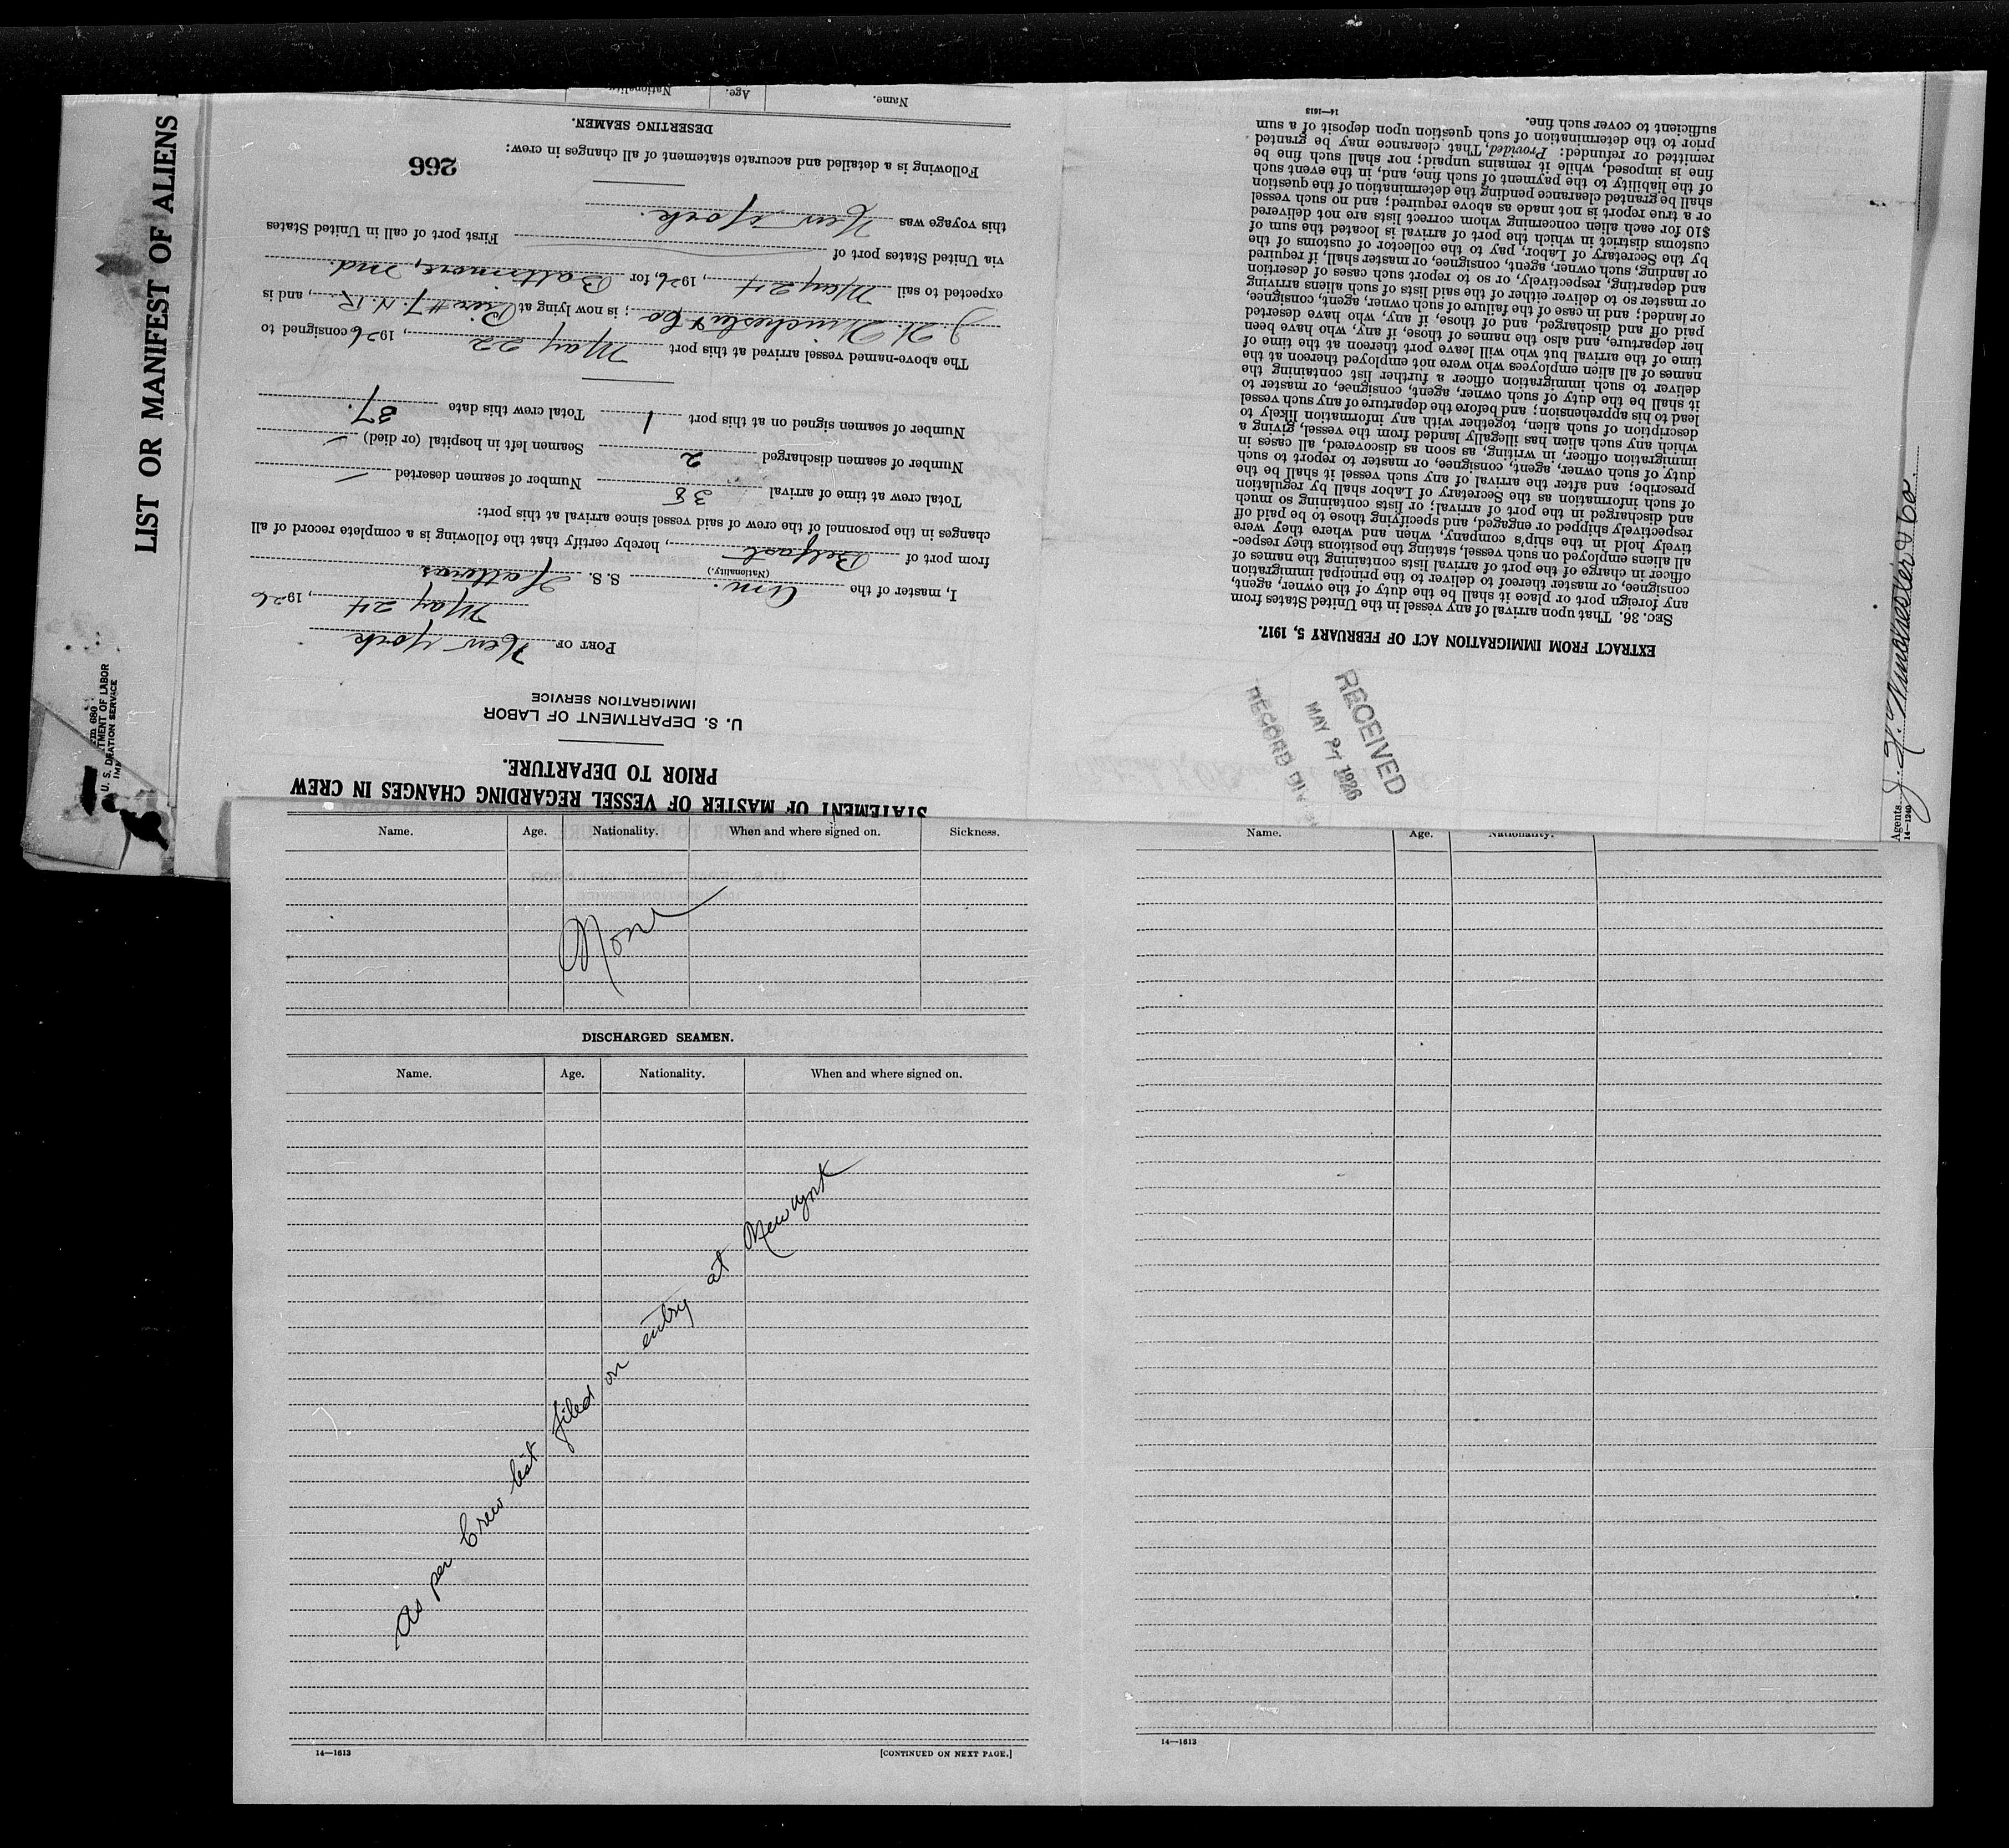 LIST OR MANIFEST OF ALIENS
680
U. S. D
TMENT OF LABOR
RATION SERVICE
STATEMENT OF MASTER OF VESSEL REGARDING CHANGES IN CREW
PRIOR TO DEPARTURE.
U. S. DEPARTMENT OF LABOR
IMMIGRATION SERVICE
PORT OF New York
May 24, 1926
I, master of the Am. S. S. Hatteras
(Nationality.)
from port of Belfast, hereby certify that the following is a complete record of all
changes in the personnel of the crew of said vessel since arrival at this port:
Total crew at time of arrival 38 Number of seamen deserted —
Number of seamen discharged 2 Seamen left in hospital (or died) —
Number of seamen signed on at this port 1 Total crew this date 37.
The above-named vessel arrived at this port May 22, 1926 consigned to
J. H. Winchester & Co; is now lying at Pier #7. N. R., and is
expected to sail May 24, 1926, for Baltimore, Md.
via United States port of First port of call in United States
this voyage was New York.
Following is a detailed and accurate statement of all changes in crew:
266
DESERTING SEAMEN.
Name. Age. Nationality.
RECEIVED
MAY 27 1926
RECORD DIV
EXTRACT FROM IMMIGRATION ACT OF FEBRUARY 5, 1917.
SEC. 36. That upon arrival of any vessel in the United States from
any foreign port or place it shall be the duty of the owner, agent,
consignee, or master thereof to deliver to the principal immigration
officer in charge of the port of arrival lists containing the names of
all aliens employed on such vessel, stating the positions they respec-
tively hold in the ship's company, when and where they were
respectively shipped or engaged, and specifying those to be paid off
and discharged in the port of arrival; or lists containing so much
of such information as the Secretary of Labor shall by regulation
prescribe; and after the arrival of any such vessel it shall be the
duty of such owner, agent, consignee, or master to report to such
immigration officer, in writing, as soon as discovered, all cases in
which any such alien has illegally landed from the vessel, giving a
description of such alien, together with any information likely to
lead to his apprehension; and before the departure of any such vessel
it shall be the duty of such owner, agent, consignee, or master to
deliver to such immigration officer a further list containing the
names of all alien employees who were not employed thereon at the
time of the arrival but who will leave port thereon at the time of
her departure, and also the names of those, if any, who have been
paid off and discharged, and of those, if any, who have deserted
or landed; and in case of the failure of such owner, agent, consignee,
or master so to deliver either of the said lists of such aliens arriving
and departing, respectively, or so to report such cases of desertion
or landing, such owner, agent, consignee, or master shall, if required
by the Secretary of Labor, pay to the collector of customs of the
customs district in which the port of arrival is located the sum of
$10 for each alien concerning whom correct lists are not delivered
or a true report is not made as above required; and no such vessel
shall be granted clearance pending the determination of the question
of the liability to the payment of such fine, and, in the event such
fine is imposed, while it remains unpaid; nor shall such fine be
remitted or refunded: Provided, That clearance may be granted
prior to the determination of such question upon deposit of a sum
sufficient to cover such fine.
14—1613
Agents J. H. Winchester & Co.
14—1240
Name. Age. Nationality. When and where signed on. Sickness.
None
DISCHARGED SEAMEN.
Name. Age. Nationality. When and where signed on.
As per Crew list filed on entry at New York
14—1613 [CONTINUED ON NEXT PAGE.]
Name. Age. Nationality.
14—1613